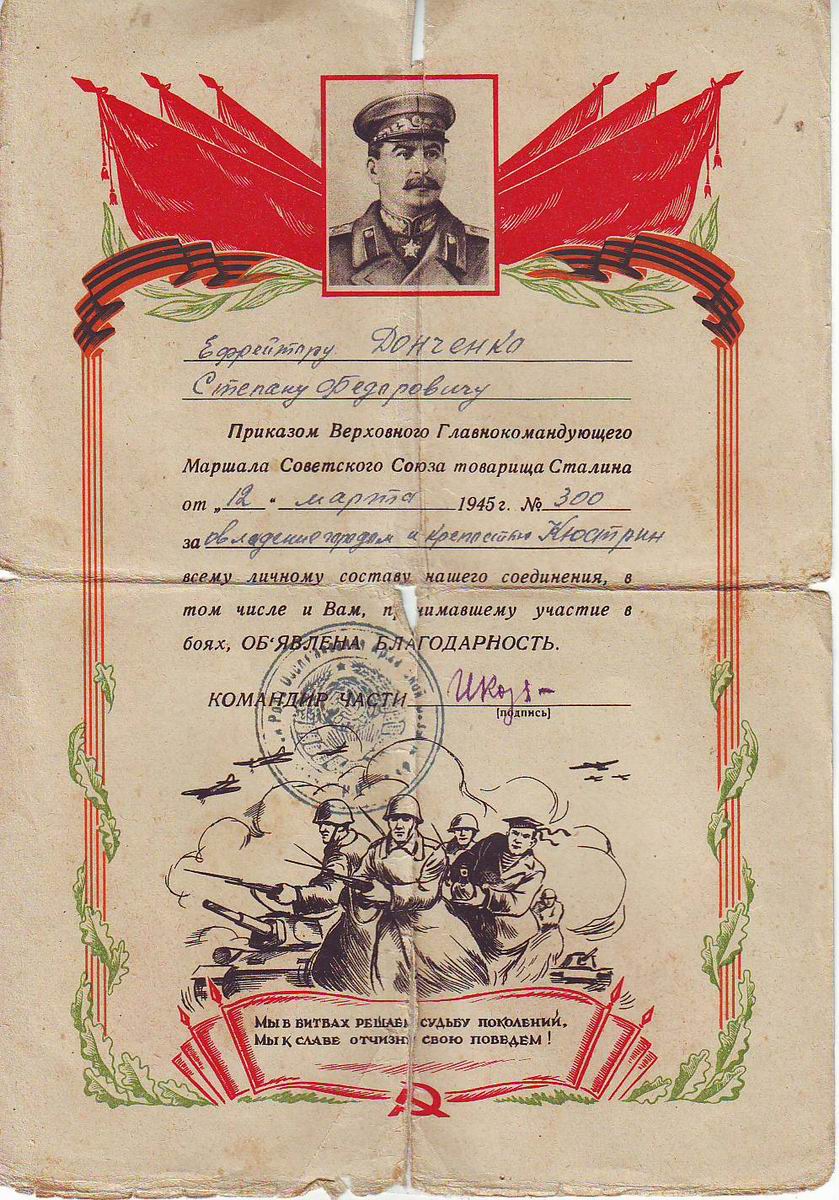 Ефрейтору Донченко
Степану Федоровичу
Приказом Верховного Главнокомандующего
Маршала Советского Союза товарища Сталина
от „12“ марта 1945 г. № 300
за овладение городом и крепостью Кюстрин
всему личному составу нашего соединения, в
том числе и Вам, принимавшему участие в
боях, ОБ‘ЯВЛЕНА БЛАГОДАРНОСТЬ.
КОМАНДИР ЧАСТИ
(подпись)
Мы в битвах решаем судьбу поколений,
Мы к славе отчизну свою поведем!